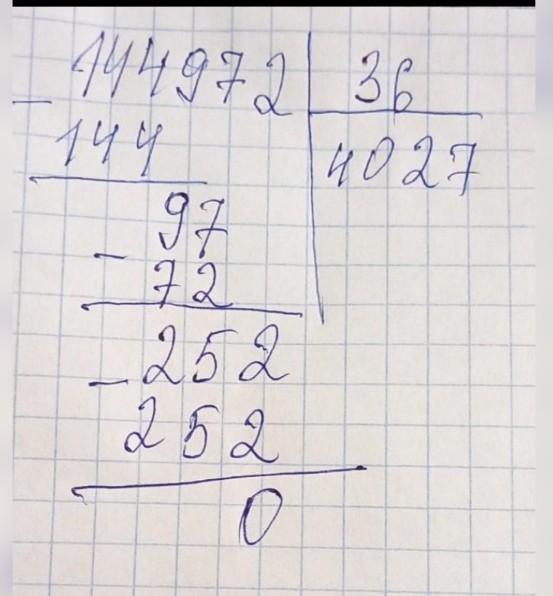 144972 36
- 144 4027
97
- 72
- 252
252
0